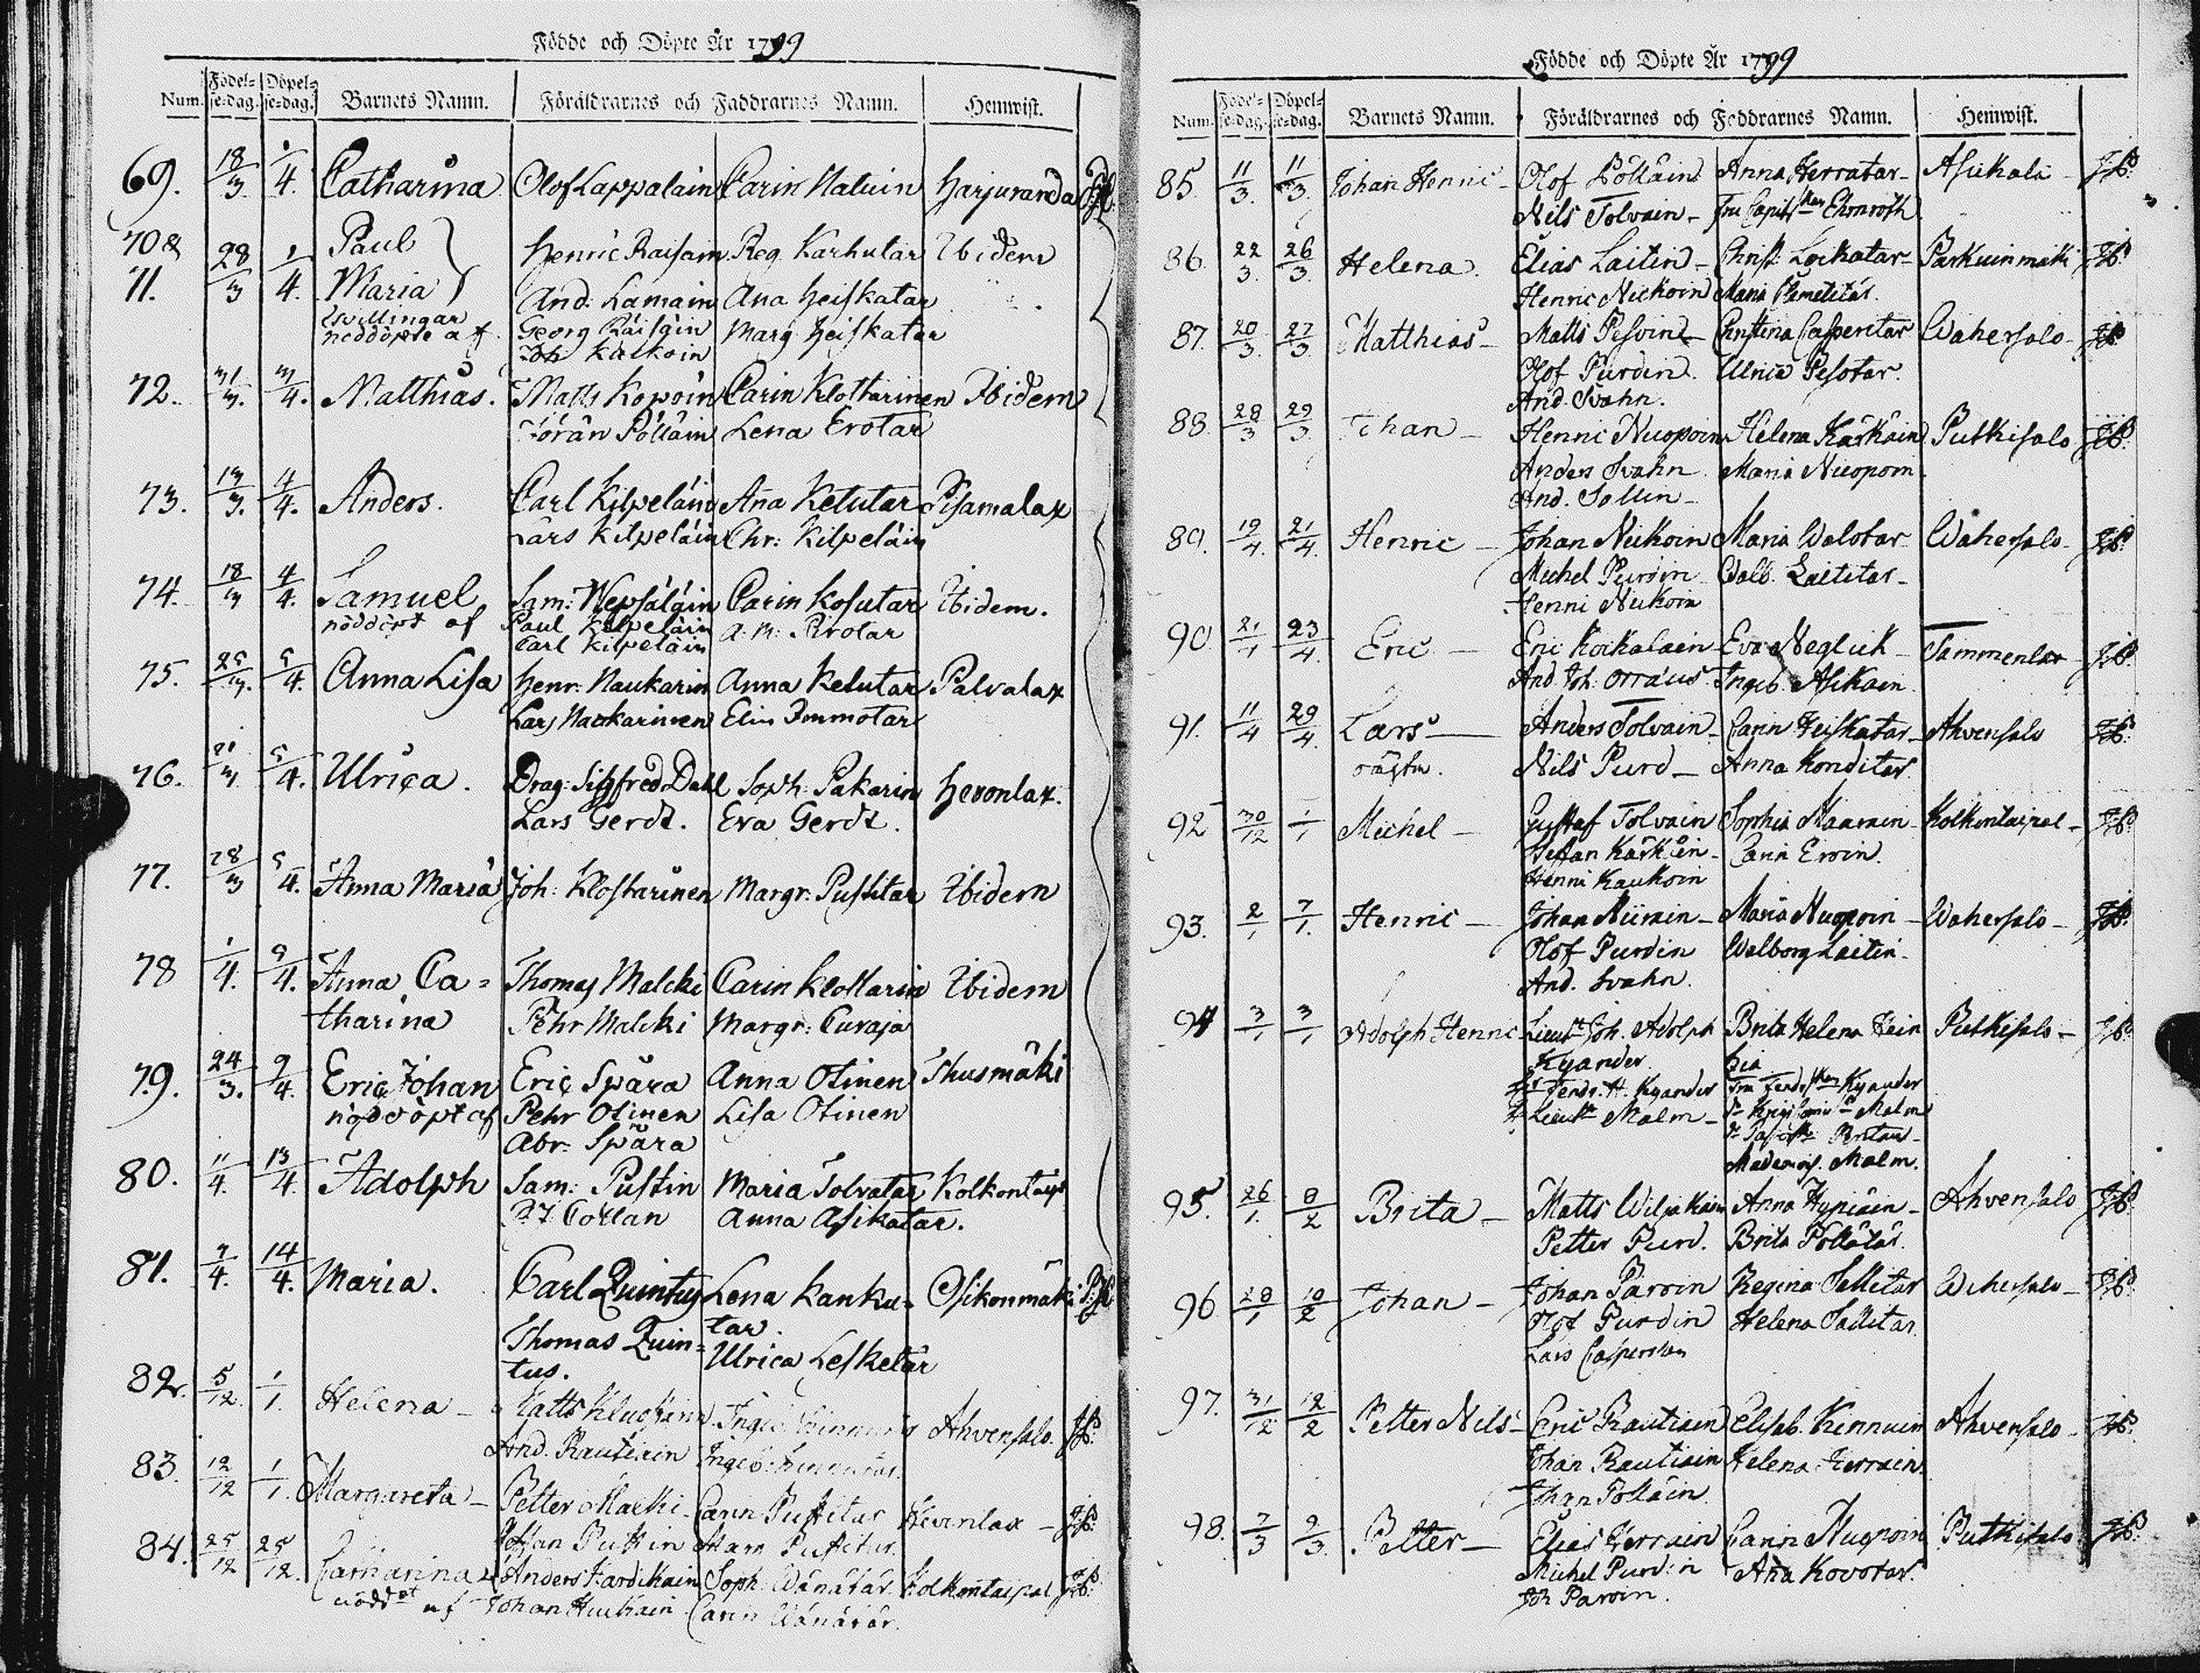 Födde och Döpte År 1799
Num. Födel-se-dag. Döpel-se-dag. Barnets Namn. Föräldrarnes och Faddrarnes Namn. Hemwist.
69. 18/3 1/4. Catharina Olof Lappalain Carin Natuin Harjuranda
70 & 28/3 1/4. Paul Henric Raisain Reg. Karhutar Ibidem
71. Maria And: Lamain Ana Heiskatar
Twillingar Georg Räisäin Marg Heiskatar
nöddöpte af Joh
72. 31/3. 3/4. Matthias. Matts Kopoin Carin Klottarinen Ibidem
Jöran Pölläin Lena Erotar
73. 13/3. 4/4. Anders. Carl Kilpeläin Ana Ketutar Pisamalax
Lars Kilpeläin Chr: Kilpeläin
74. 18/3 4/4. Samuel Sam: Wepsäläin Carin Kosutar Ibidem.
nöddöpt af Paul Kilpeläin A: M:
Carl Kilpeläin
75. 25/3. 5/4. Anna Lisa Henr: Naukarin Anna Ketutar Palvalax
Lars Naukarinen Elin Immotar
76. 21/3 5/4. Ulrica. Drag: Sigfred Dahl Soph: Pakarin Hevonlax.
Lars Gerdt. Eva Gerdt.
77. 28/3 5/4. Anna Maria Joh: Klostarinen Margr: Pustitar Ibidem
78 1/4. 9/4. Anna Ca= Thomas Malcki Carin Klottarin Ibidem
tharina Pehr Malcki Margr: Curaja
79. 24/3. 9/4. Eric Johan Eric Spåra Anna Otinen Ihusmäki
nöddöpt af Pehr Otinen Lisa Otinen
Abr: Spåra
80. 11/4. 13/4. Adolph Sam: Pustin Maria Tolvatar Kolkontaip
Collan Anna Asikatar.
81. 7/4. 14/4. Maria. Carl Quintus Lena Kanku= Osikonmäki
tar.
Thomas Quin= Ulrica Lesketär
tus.
82. 5/12. 1/1. Helena Matts And. Rautiain Ahvensalo
83. 12/12 1/1. Margareta Petter Malcki Carin Pustitar Hevonlax
Johan Pustin Mar Pustitar.
84. 25/12 25/12. Catharina Anders Kardikain Soph: Wänätär Kolkontaipal
nöddpt af Johan Carin Wänätär.
Födde och Döpte År 1799
Num. Födel-se-dag. Döpel-se-dag. Barnets Namn. Föräldrarnes och Faddrarnes Namn. Hemwist.
85 11/3. 11/3. Johan Henric Olof Pölläin Anna Herratar Asikala
Nils Tolvain Fru Capitskan Ehrnroth
86. 22/3. 26/3. Helena. Elias Laitin Christ. Loikatar Parkuinmäki
Henric Nickoin Maria
87. 20/3. 27/3. Matthias Matts Pesoin Christina Casperitar Wahersalo
Olof Purdin. Ulrica Pesotar.
And. Svahn.
88. 28/3 29/3. Johan Henric Nuopoin Helena Kärkäin Putkisalo
Anders Svahn Maria Nuopoin
And. Sollin
89. 19/4. 21/4. Henric Johan Nickoin Maria Walotar Wahersalo
Michel Purdin Walb. Laititar
Henric Nickoin
90. 21/1 23/4. Eric Eric Koikalain Eva Neglick Tammenlax
And. Joh. Orræus Ingeb. Asikain
91. 11/4 29/4. Lars Anders Tolvain Carin Heiskatar Ahvensalo
oägta. Nils Purd Anna Konditar
92 30/12 1/1 Michel Gustaf Tolvain Sophia Maarain Kolkontaipal
Johan Kärkäin Carin Eroin.
Henric Kaukoin
93. 2/1 7/1. Henric Johan Niirain Maria Nuopoin Wahersalo
Olof Purdin Walborg Laitin
And. Svahn.
94 3/1 3/1 Adolph Henric Lieutt Joh. Adolph Brita Helena Hein Putkisalo
Kyander. cia
Fendr. H. Kyander Fru Fendrskan Kyander
Lieutn Malm Malm
Mademois. Malm.
95. 26/1. 8/2 Brita Matts Wilpakain Anna Hyniäin Ahvensalo
Petter Purd. Brita Pöllätär.
96 28/1 10/2 Johan Johan Parvin Regina Sallitar Wahersalo
Olof Purdin Helena Sallitar.
Lars Caspersson
97. 31/12 12/2 Petter Nils Eric Rautiain Elisab. Kinnuin Ahvensalo
Johan Rautiain Helena Herrain.
Johan Pölläin.
98. 7/3 9/3. Petter Elias Herrain Carin Nuopoin Putkisalo
Michel Purdin Ana Kovotar.
Joh Parvin.